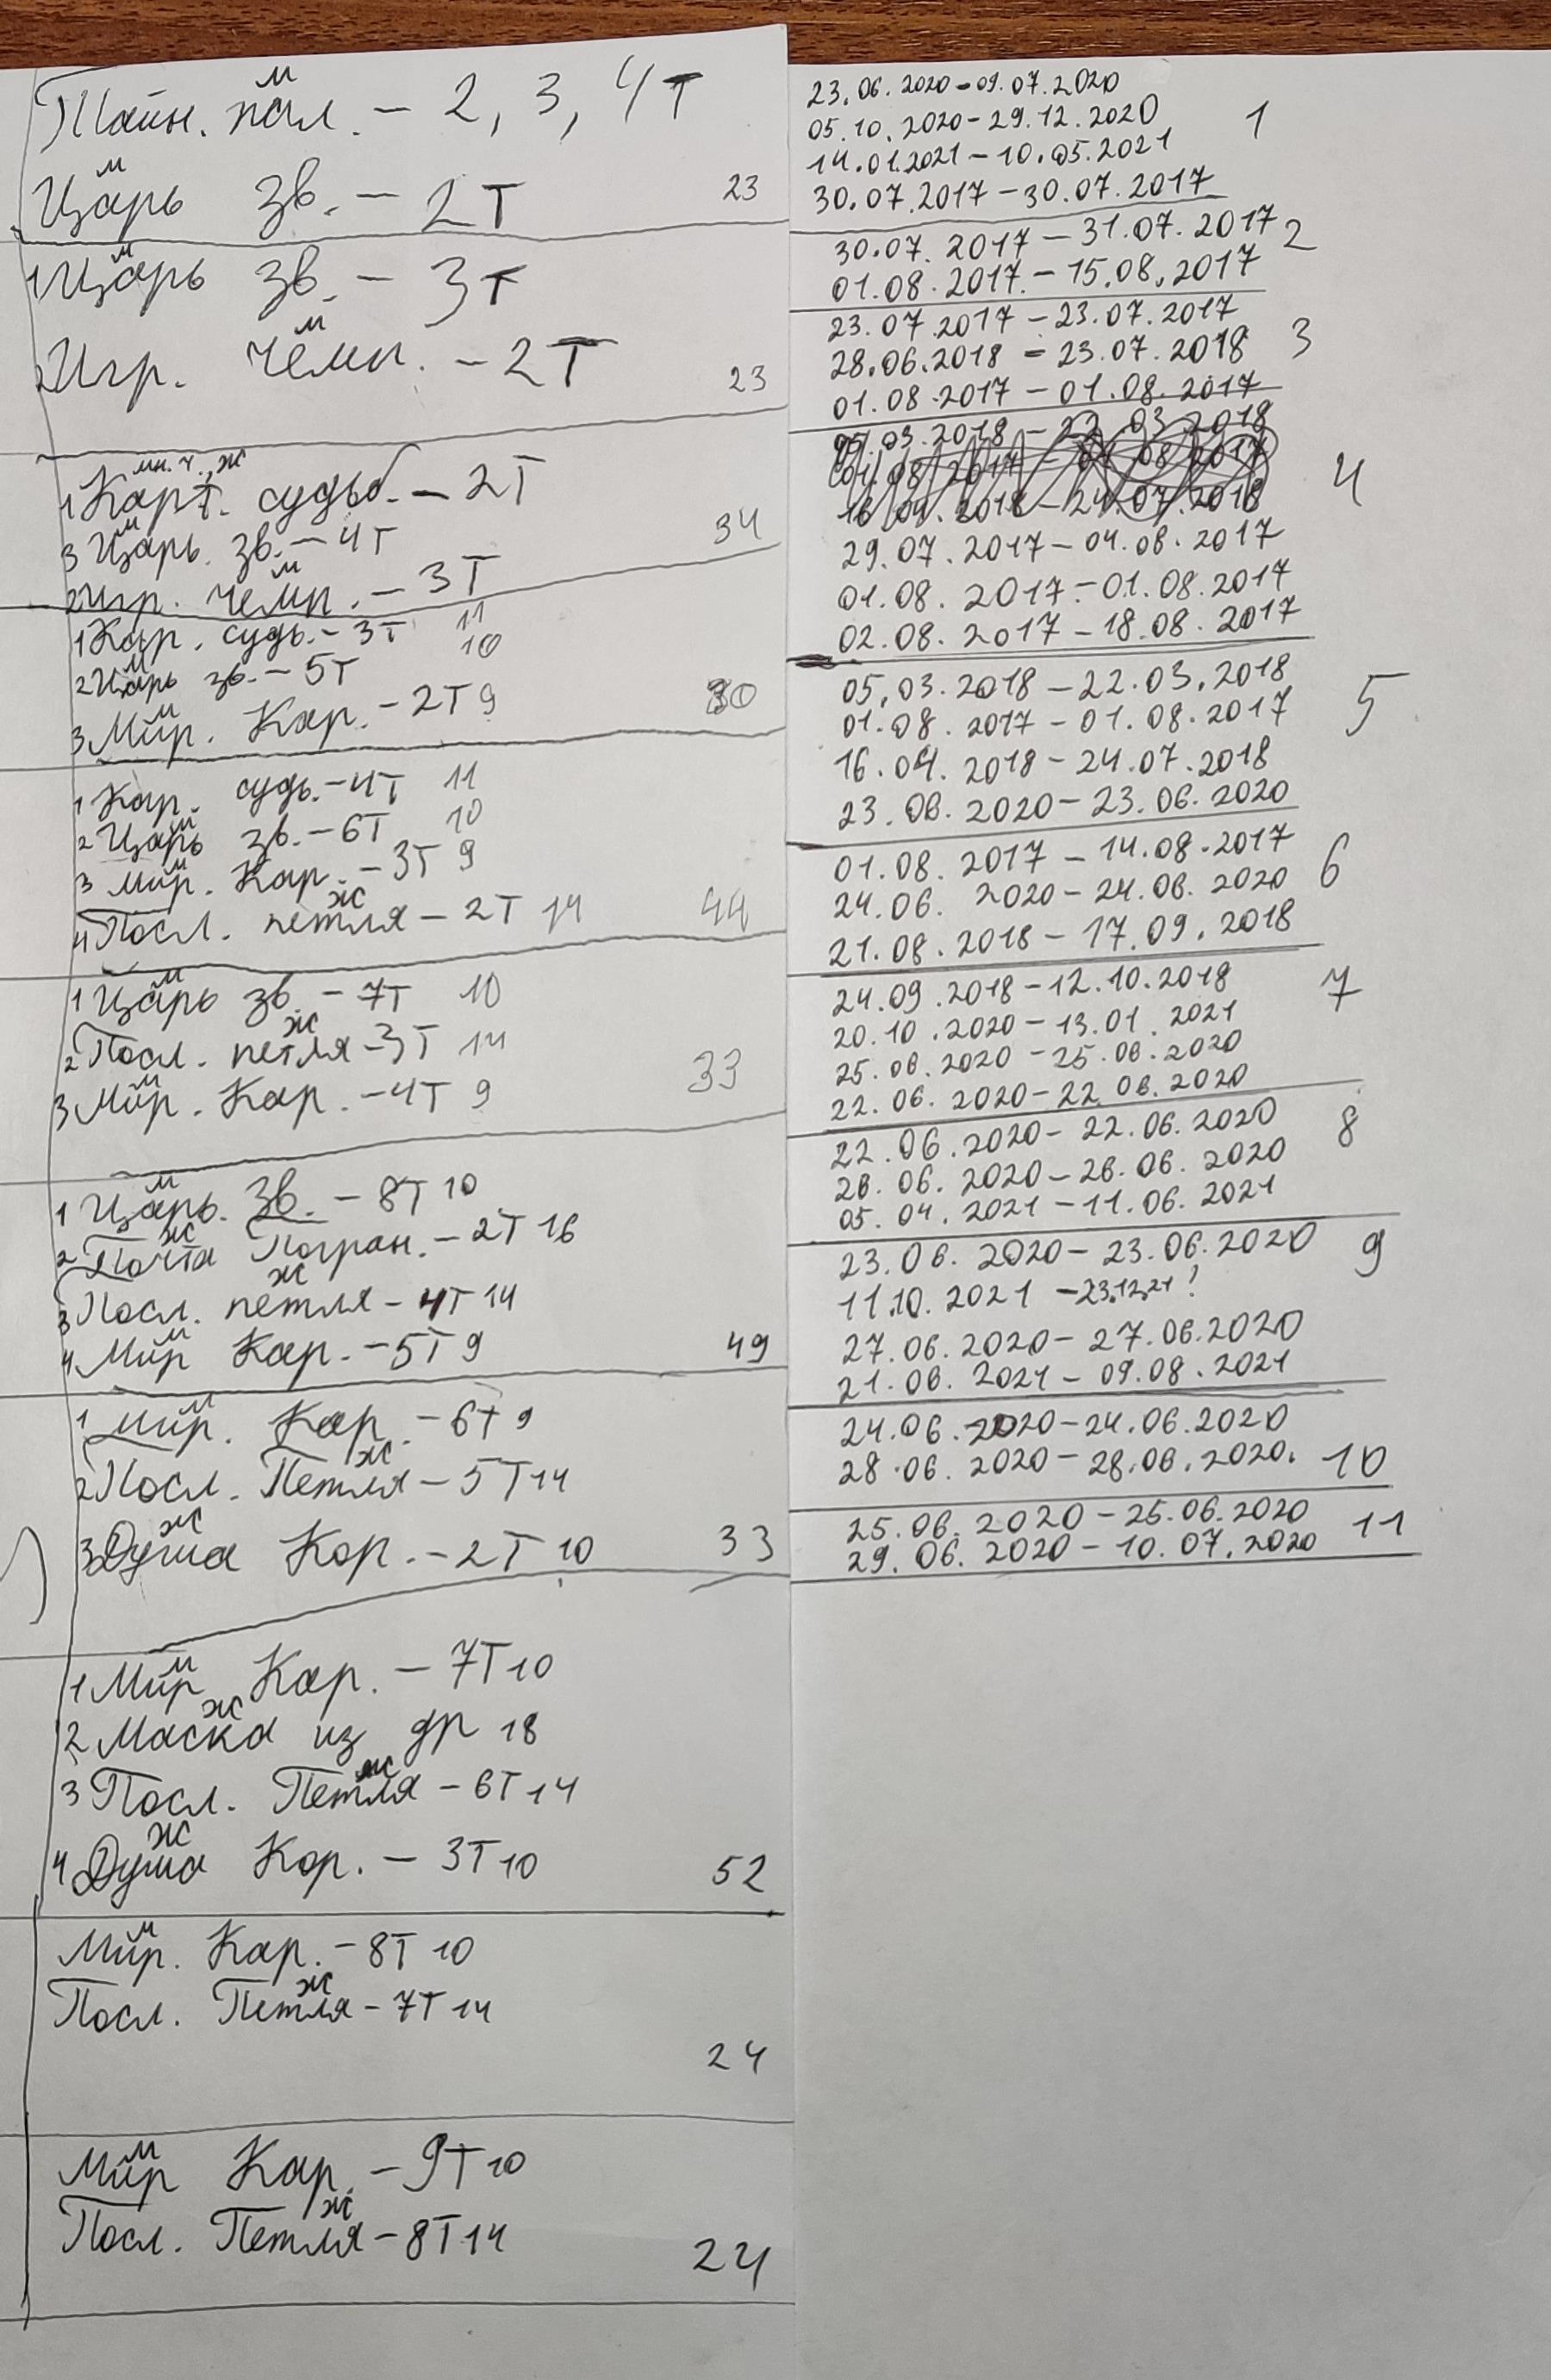 м
Тайн. пал. – 2, 3, 4Т
м
Царь зв. – 2Т 23
м
1 Царь зв. – 3Т
м
2 Игр. чемп. – 2Т 23
мн. ч., ж
1 Карт. судьб. – 2Т
м
3 Царь. зв. – 4Т 34
м
2 Игр. чемп. – 3Т
1 Кар. судь. – 3Т 11
м
2 Царь зв. – 5Т 10
м
3 Мир. Кар. – 2Т 9 30
1 Кар. судь. – 4Т 11
м
2 Царь зв. – 6Т 10
м
3 Мир. Кар. – 3Т 9
ж
4 Посл. петля – 2Т 14 44
м
1 Царь зв. – 7Т 10
ж
2 Посл. петля – 3Т 14
м
3 Мир. Кар. – 4Т 9 33
м
1 Царь. Зв. – 8Т 10
ж
2 Почта Погран. – 2Т 16
ж
3 Посл. петля – 4Т 14
м
4 Мир Кар. – 5Т 9 49
м
1 Мир. Кар. – 6Т 9
ж
2 Посл. Петля – 5Т 14
ж
3 Душа Кор. – 2Т 10 33
м
1 Мир Кар. – 7Т 10
ж
2 Маска из др 18
ж
3 Посл. Петля – 6Т 14
ж
4 Душа Кор. – 3Т 10 52
м
Мир. Кар. – 8Т 10
ж
Посл. Петля – 7Т 14
24
м
Мир Кар. – 9Т 10
ж
Посл. Петля – 8Т 14
24
23.06.2020 – 09.07.2020
05.10.2020 – 29.12.2020 1
14.01.2021 – 10.05.2021
30.07.2017 – 30.07.2017
30.07.2017 – 31.07.2017 2
01.08.2017 – 15.08.2017
23.07.2017 – 23.07.2017
28.06.2018 – 23.07.2018 3
01.08.2017 – 01.08.2017
05.03.2018 – 22.03.2018
4
29.07.2017 – 04.08.2017
01.08.2017 – 01.08.2017
02.08.2017 – 18.08.2017
05.03.2018 – 22.03.2018
01.08.2017 – 01.08.2017 5
16.04.2018 – 24.07.2018
23.06.2020 – 23.06.2020
01.08.2017 – 14.08.2017
24.06.2020 – 24.06.2020 6
21.08.2018 – 17.09.2018
24.09.2018 – 12.10.2018 7
20.10.2020 – 13.01.2021
25.06.2020 – 25.06.2020
22.06.2020 – 22.06.2020
22.06.2020 – 22.06.2020 8
26.06.2020 – 26.06.2020
05.04.2021 – 11.06.2021
23.06.2020 – 23.06.2020 9
11.10.2021 – 23.12.21 !
27.06.2020 – 27.06.2020
21.06.2021 – 09.08.2021
24.06.2020 – 24.06.2020
28.06.2020 – 28.06.2020. 10
25.06.2020 – 25.06.2020 11
29.06.2020 – 10.07.2020